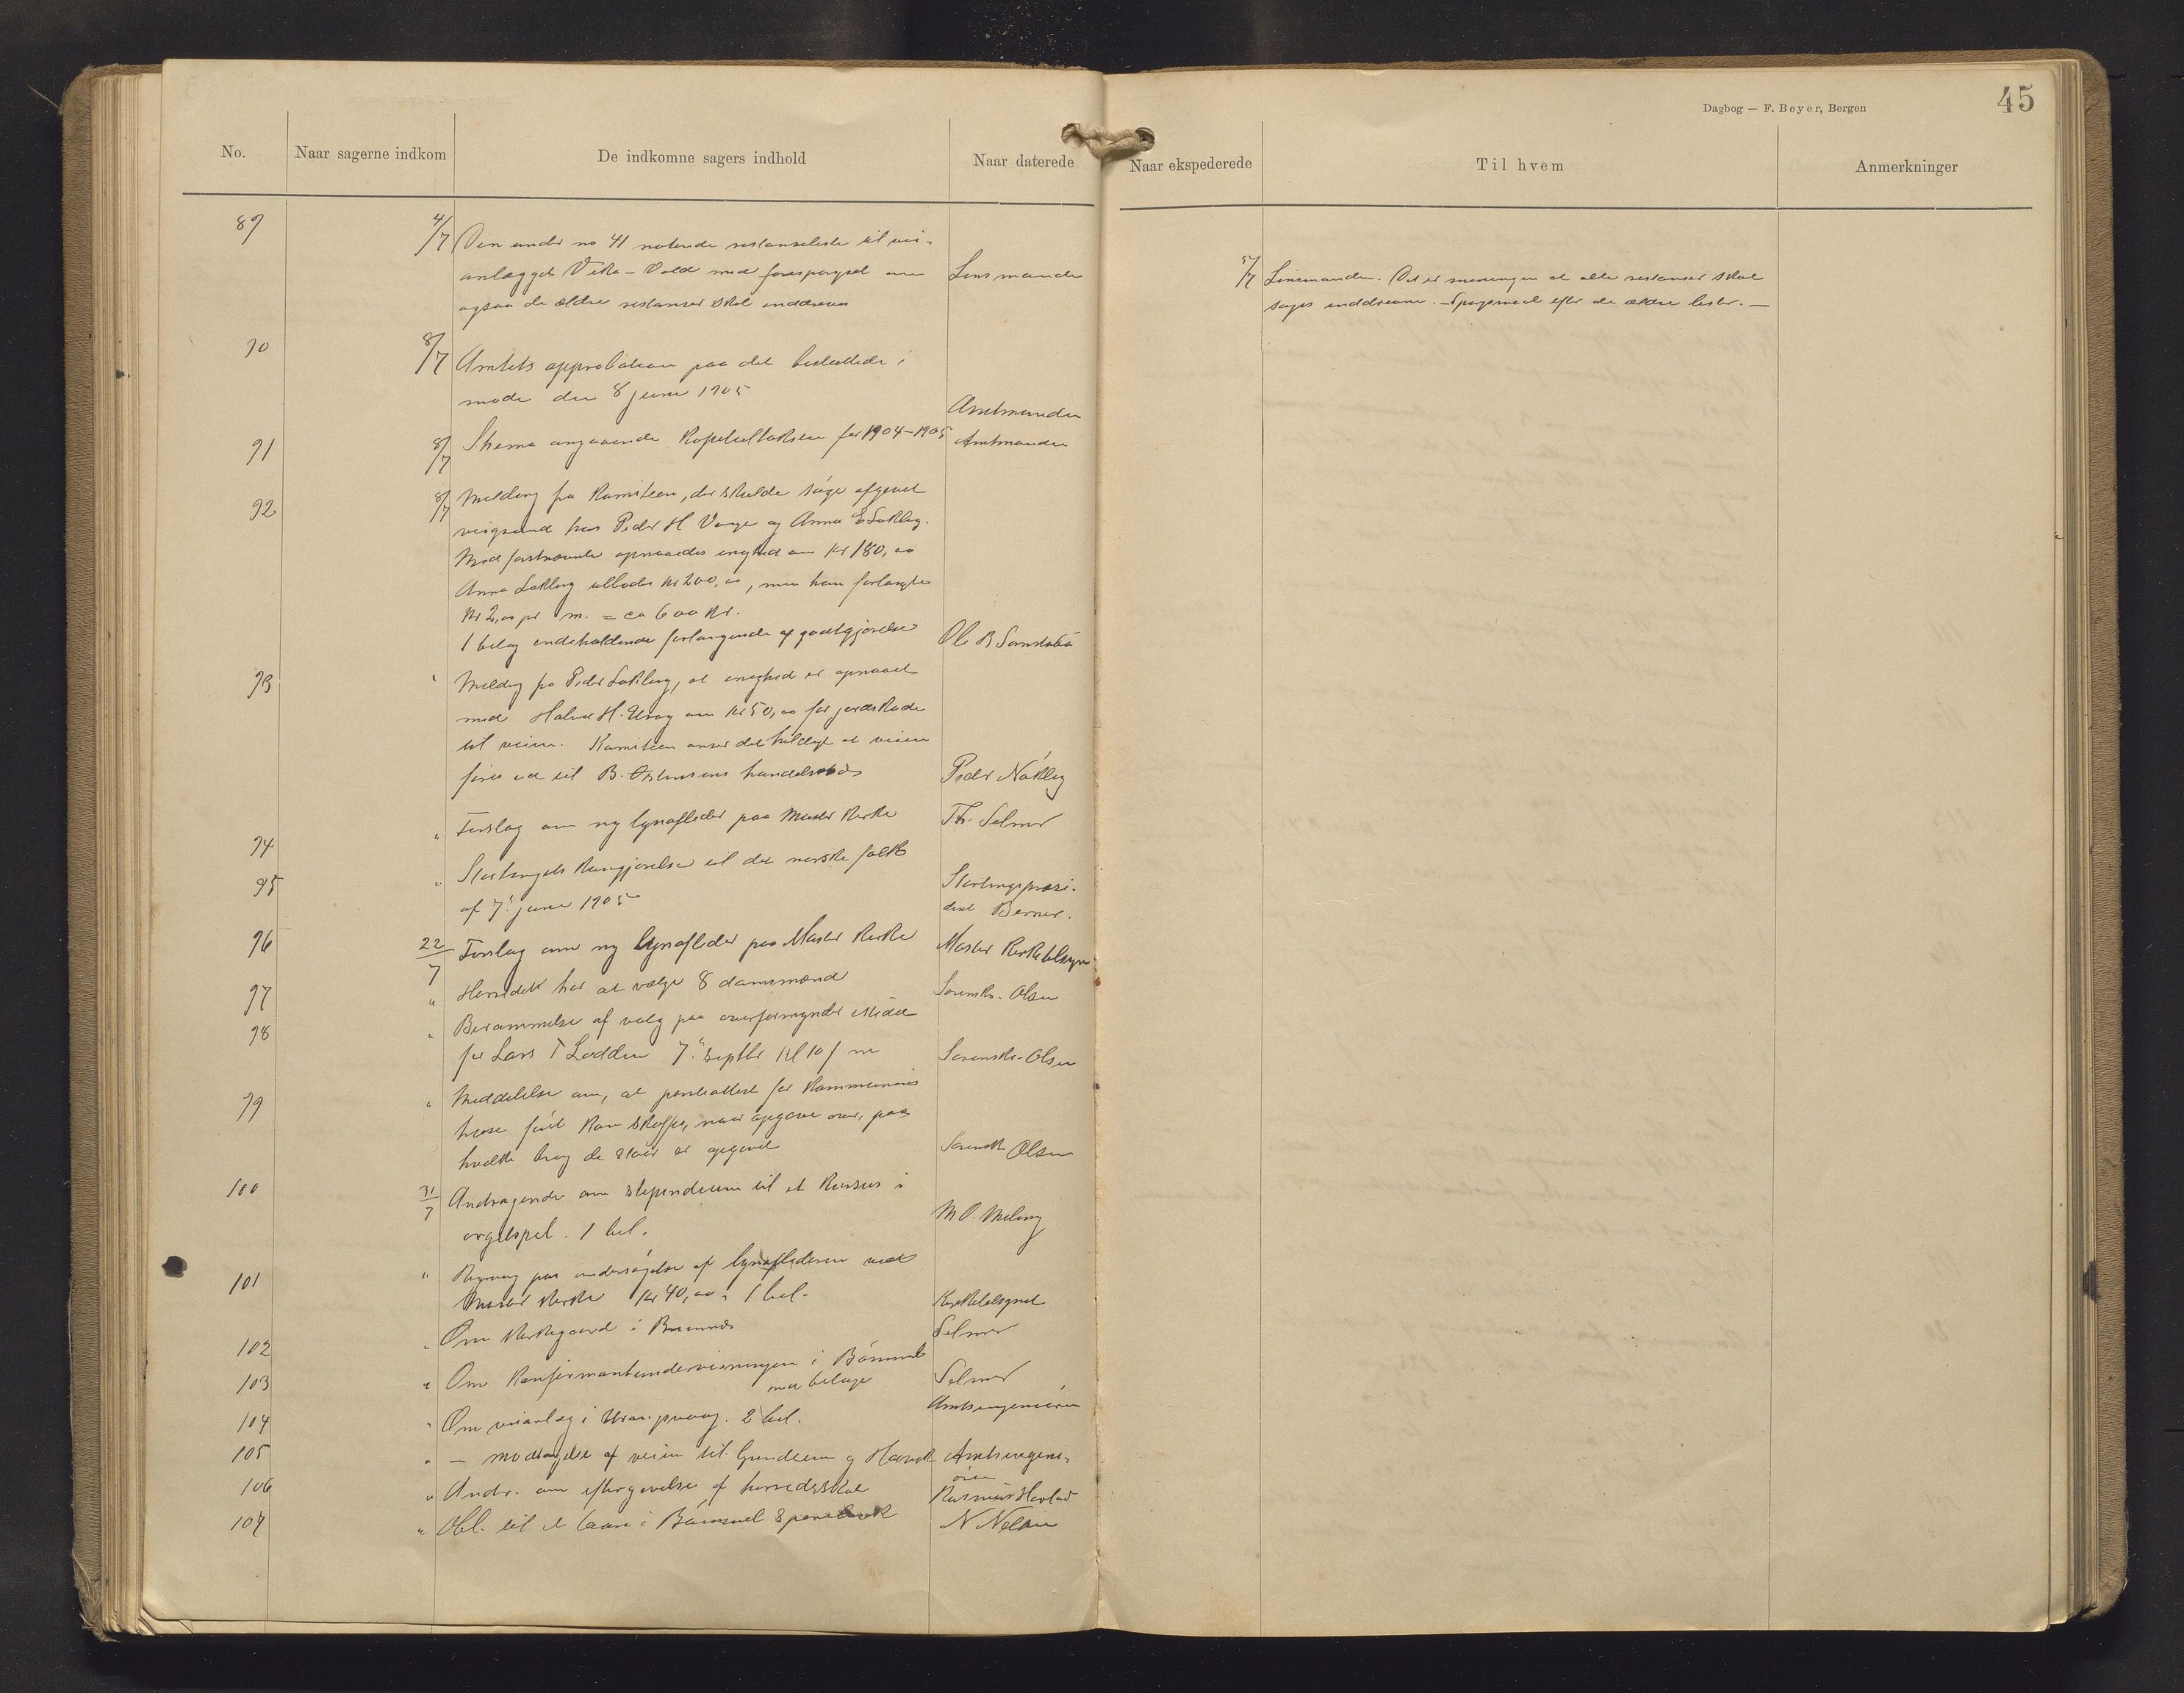 Dagbog — F. Beyer, Bergen
45
No.
Naar sagerne indkom
De indkomne sagers indhold
Naar daterede
Naar ekspederede
Til hvem
Anmerkninger
89 4/7 Den under no 41 noterede restanseliste til vei-
anlægget Vika – Vold med forespørgsel om Lensmanden
ogsaa de ældre restanser skal inddrives
5/7 Lensmanden. Det er meningen at alle restanser skal
søges inddrevne. – Spørgsmaal efter de ældre lister. –
90 8/7 Amtets approbation paa det besluttede i
møde den 8 juni 1905 Amtmanden
91 8/7 Skema angaaende Kopskattaksten for 1904–1905 Amtmanden
92 8/7 Melding fra Komiteen, der skulde søge afgivet
veigrund hos Peder H Vaage og Anna E Løkling.
Med førstnævnte opnaaedes enighed om Kr 180,00
Anna Løkling tilbødes Kr 200,00, men hun forlangte
Kr 2,00 pr m. = ca 600 Kr.
1 bilag indeholdende forlangende af godtgjørelse Ole B
93 " Melding fra Peder Løkling, at enighed er opnaaet
med Halvor H. Uvaag om Kr 50,00 for jordskade
til veien. Komiteen anser det heldigst at veien
føres ud til B. handelssted Peder Nøkling
94 " Forslag om ny lynafleder paa Møster Kirke Th. Selmer
95 " Stortingets Kungjørelse til det norske folk
af 7. juni 1905 Stortingspræsi-
dent Berner.
96 22/7 Forslag om ny lynafleder paa Møster Kirke Møster Kirketilsyn
97 " Herredet har at vælge 8 domsmænd Sorenskr. Olsen
98 " Berammelse af valg paa overformynder istedet
for Lars T Lodden 7. septbr Kl 10 f m Sorenskr. Olsen
99 " Meddelelse om, at panteattest for Kommunens
huse først Kan skaffes, naar opgave over, paa
hvilke brug de staar er opgivet Sorenskr Olsen
100 31/7 Andragende om stipendium til et Kursus i
orgelspil. 1 bil. M O. Meling
101 " Regning paa undersøgelse af lynaflederen ved
Møster Kirke Kr 40,00. 1 bil. Kirketilsynet
102 " Om Kirkegaard i Bremnes Selmer
103 " Om Konfirmantundervisningen i Bømmel
med bilage Selmer
104 " Om veianlæg i Uvaag. 2 bil. Amtsingeniøren
105 " – modtagelse af veien til og Amtsingeni-
øren
106 " Andr. om eftergivelse af herredsskat Rasmus
107 " Obl. til et laan i Bømmel Sparebank N Nelsen